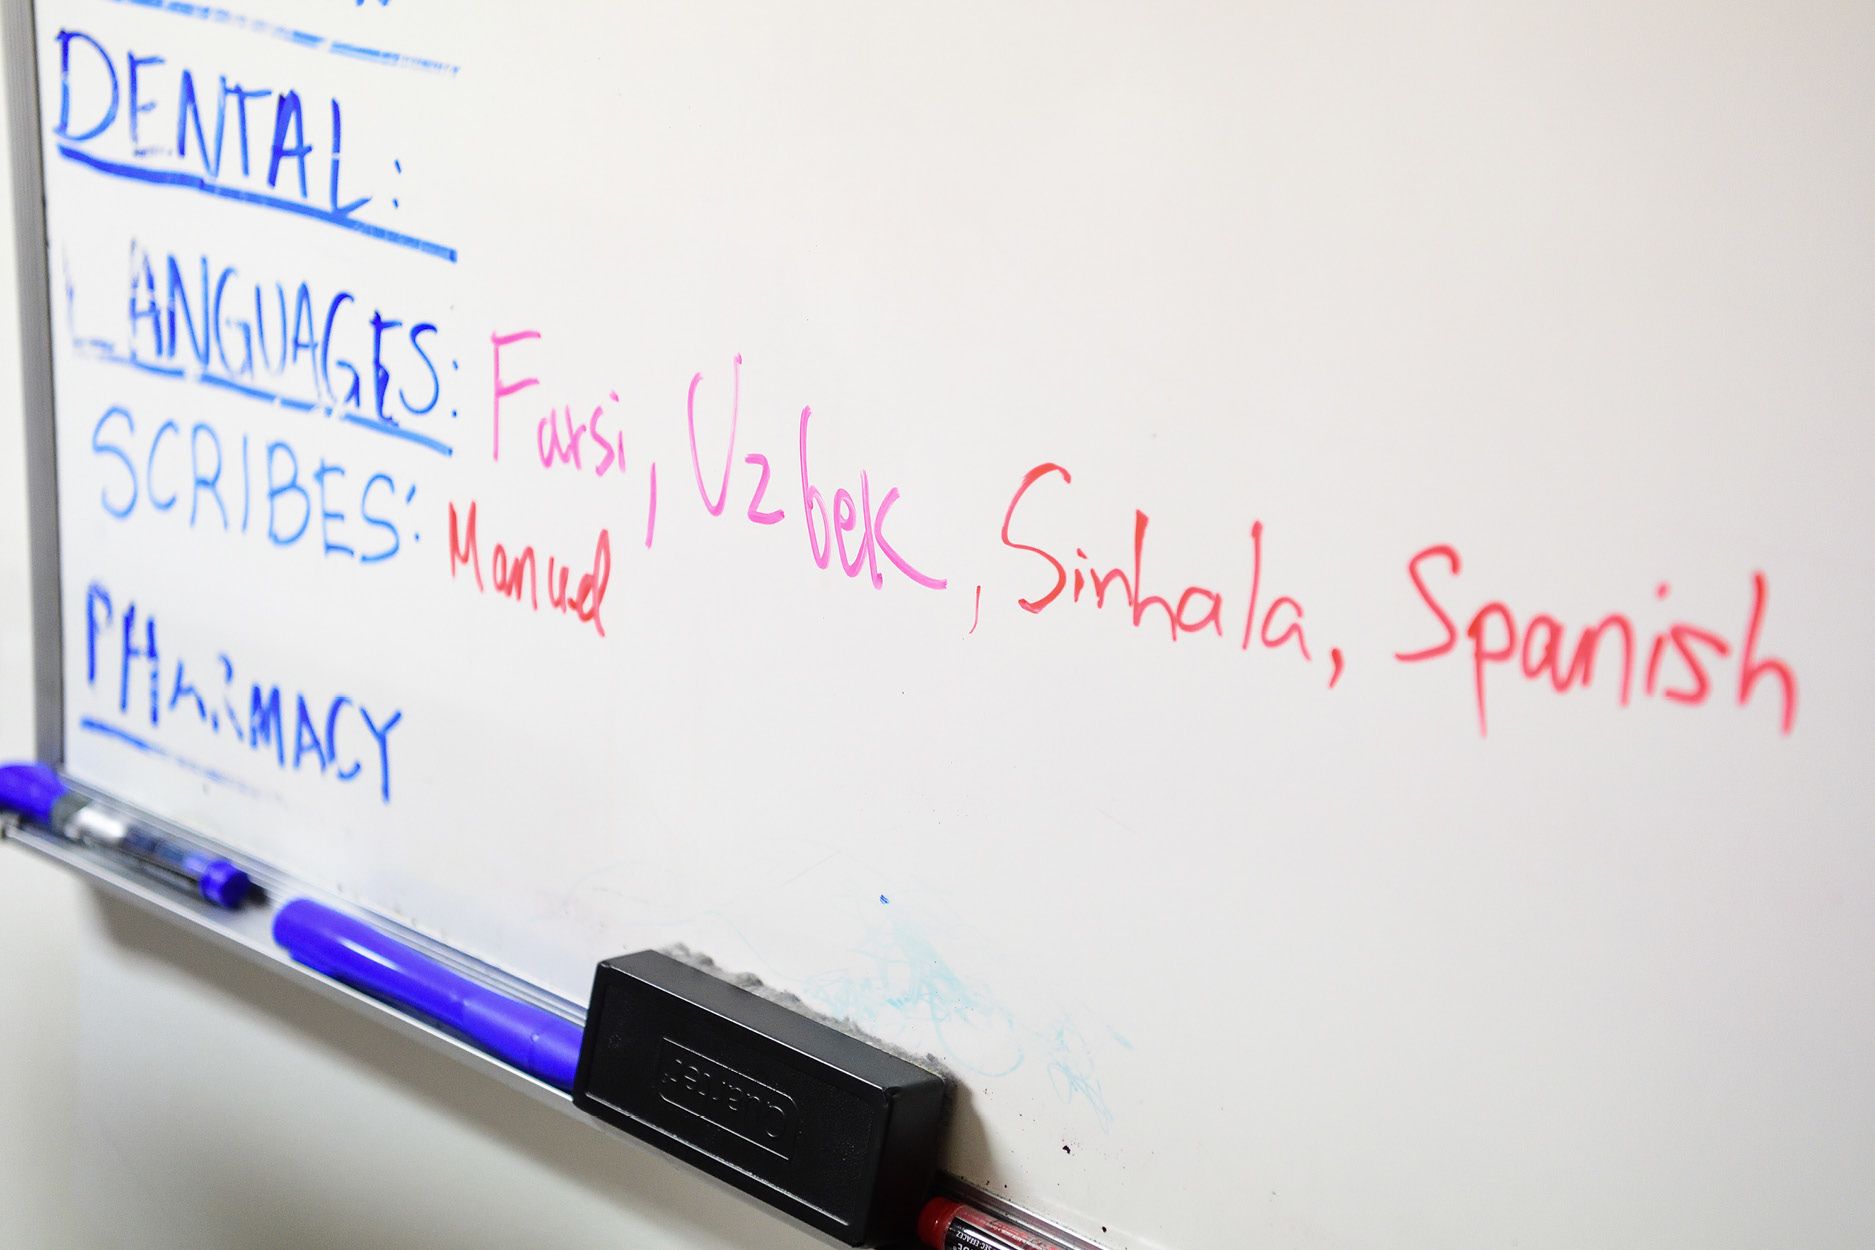 DENTAL:
LANGUAGES: Farsi, Uzbek, Sinhala, Spanish
SCRIBES: Manud
PHARMACY
Quartet